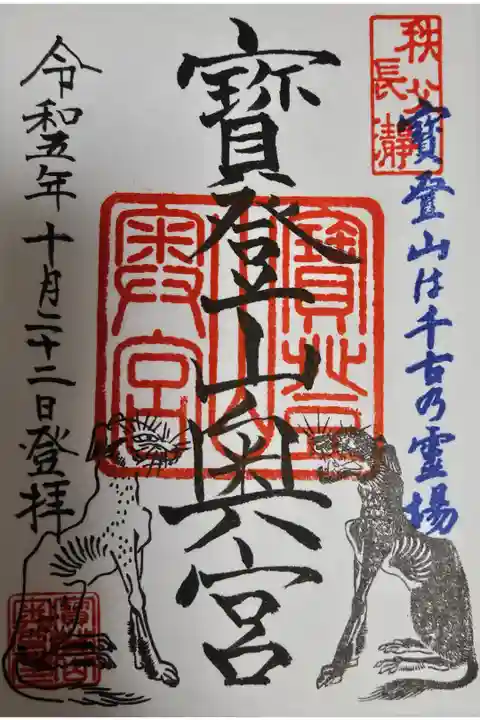 秩父
長瀞
寳登山は千古乃霊場
寳登山奥宮
寳登山
奥宮
令和五年十月二十二日登拝